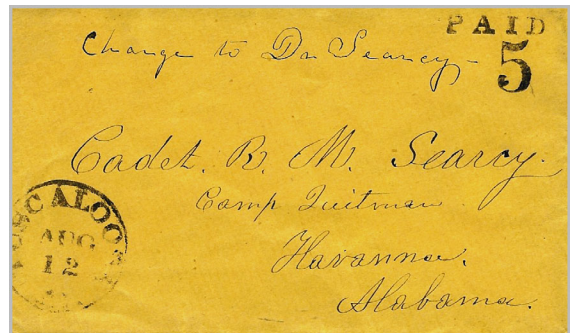 PAID
5
Charge to Dr Searcy
Cadet. R. M. Searcy.
Camp Quitman
Havanna.
Alabama.
TUSCALOOSA
AUG
12